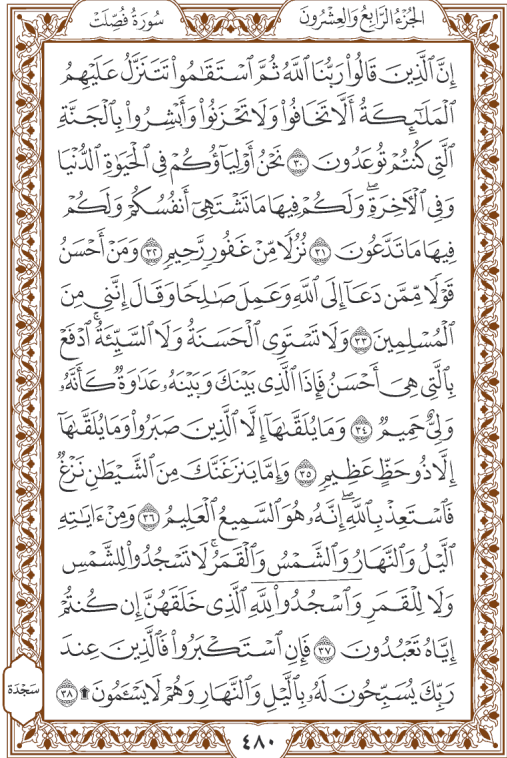 الجزء الرابع والعشرون
سورة فصلت
إِنَّ ٱلَّذِينَ قَالُوا۟ رَبُّنَا ٱللَّهُ ثُمَّ ٱسْتَقَٰمُوا۟ تَتَنَزَّلُ عَلَيْهِمُ
ٱلْمَلَٰٓئِكَةُ أَلَّا تَخَافُوا۟ وَلَا تَحْزَنُوا۟ وَأَبْشِرُوا۟ بِٱلْجَنَّةِ
ٱلَّتِى كُنتُمْ تُوعَدُونَ ٣٠ نَحْنُ أَوْلِيَآؤُكُمْ فِى ٱلْحَيَوٰةِ ٱلدُّنْيَا
وَفِى ٱلْءَاخِرَةِ ۖ وَلَكُمْ فِيهَا مَا تَشْتَهِىٓ أَنفُسُكُمْ وَلَكُمْ
فِيهَا مَا تَدَّعُونَ ٣١ نُزُلًا مِّنْ غَفُورٍ رَّحِيمٍ ٣٢ وَمَنْ أَحْسَنُ
قَوْلًا مِّمَّن دَعَآ إِلَى ٱللَّهِ وَعَمِلَ صَٰلِحًا وَقَالَ إِنَّنِى مِنَ
ٱلْمُسْلِمِينَ ٣٣ وَلَا تَسْتَوِى ٱلْحَسَنَةُ وَلَا ٱلسَّيِّئَةُ ۚ ٱدْفَعْ
بِٱلَّتِى هِىَ أَحْسَنُ فَإِذَا ٱلَّذِى بَيْنَكَ وَبَيْنَهُۥ عَدَٰوَةٌ كَأَنَّهُۥ
وَلِىٌّ حَمِيمٌ ٣٤ وَمَا يُلَقَّىٰهَآ إِلَّا ٱلَّذِينَ صَبَرُوا۟ وَمَا يُلَقَّىٰهَآ
إِلَّا ذُو حَظٍّ عَظِيمٍ ٣٥ وَإِمَّا يَنزَغَنَّكَ مِنَ ٱلشَّيْطَٰنِ نَزْغٌ
فَٱسْتَعِذْ بِٱللَّهِ ۖ إِنَّهُۥ هُوَ ٱلسَّمِيعُ ٱلْعَلِيمُ ٣٦ وَمِنْ ءَايَٰتِهِ
ٱلَّيْلُ وَٱلنَّهَارُ وَٱلشَّمْسُ وَٱلْقَمَرُ ۚ لَا تَسْجُدُوا۟ لِلشَّمْسِ
وَلَا لِلْقَمَرِ وَٱسْجُدُوا۟ لِلَّهِ ٱلَّذِى خَلَقَهُنَّ إِن كُنتُمْ
إِيَّاهُ تَعْبُدُونَ ٣٧ فَإِنِ ٱسْتَكْبَرُوا۟ فَٱلَّذِينَ عِندَ
رَبِّكَ يُسَبِّحُونَ لَهُۥ بِٱلَّيْلِ وَٱلنَّهَارِ وَهُمْ لَا يَسْـَٔمُونَ ۩ ٣٨
سجدة
٤٨٠